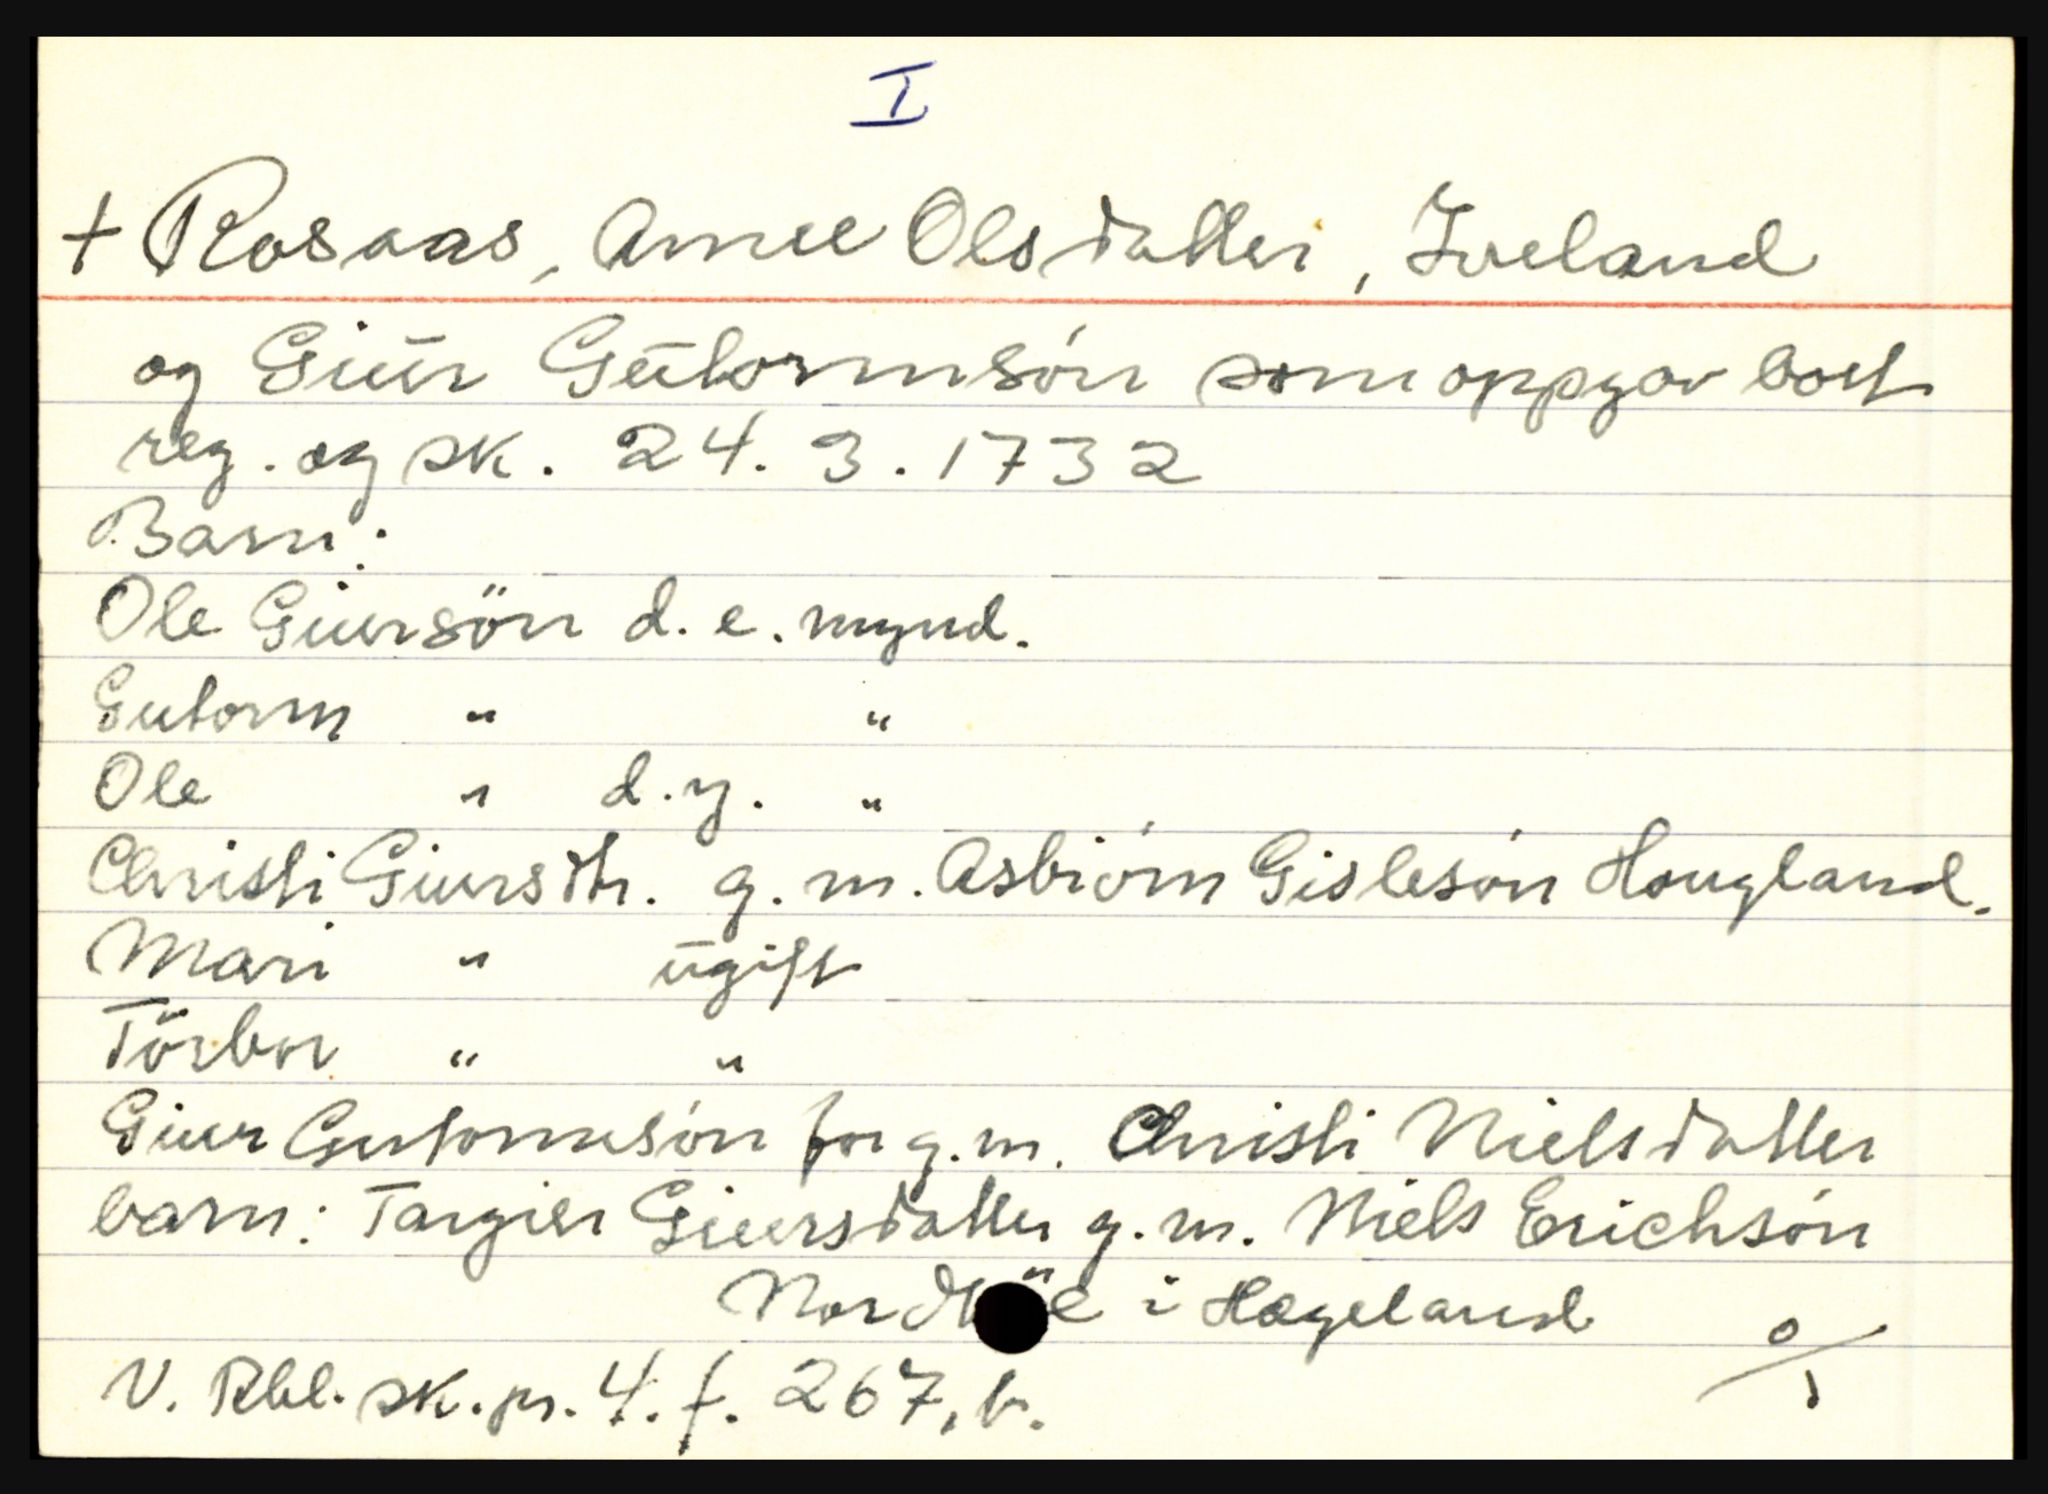 I
+ Rosaas, Anne Olsdatter, Iveland
og Giūr Gūtormsón som oppgav boet
reg. og sk. 24. 3. 1732
Barn:
Ole Giursön d. e. mynd.
Gutorm " "
Ole " d. y. "
Christi Giursdtr. g. m. Asbiórn Gislesón Hougland.
Mari " ūgift
Törbor " "
Giur Gutormsón før g. m. Christi Nielsdatter
barn: Targier Giursdatter g. m. Niels Erichsón
i Hægeland
0/1
V. Rbl. sk. pr. 4. f. 267, b.